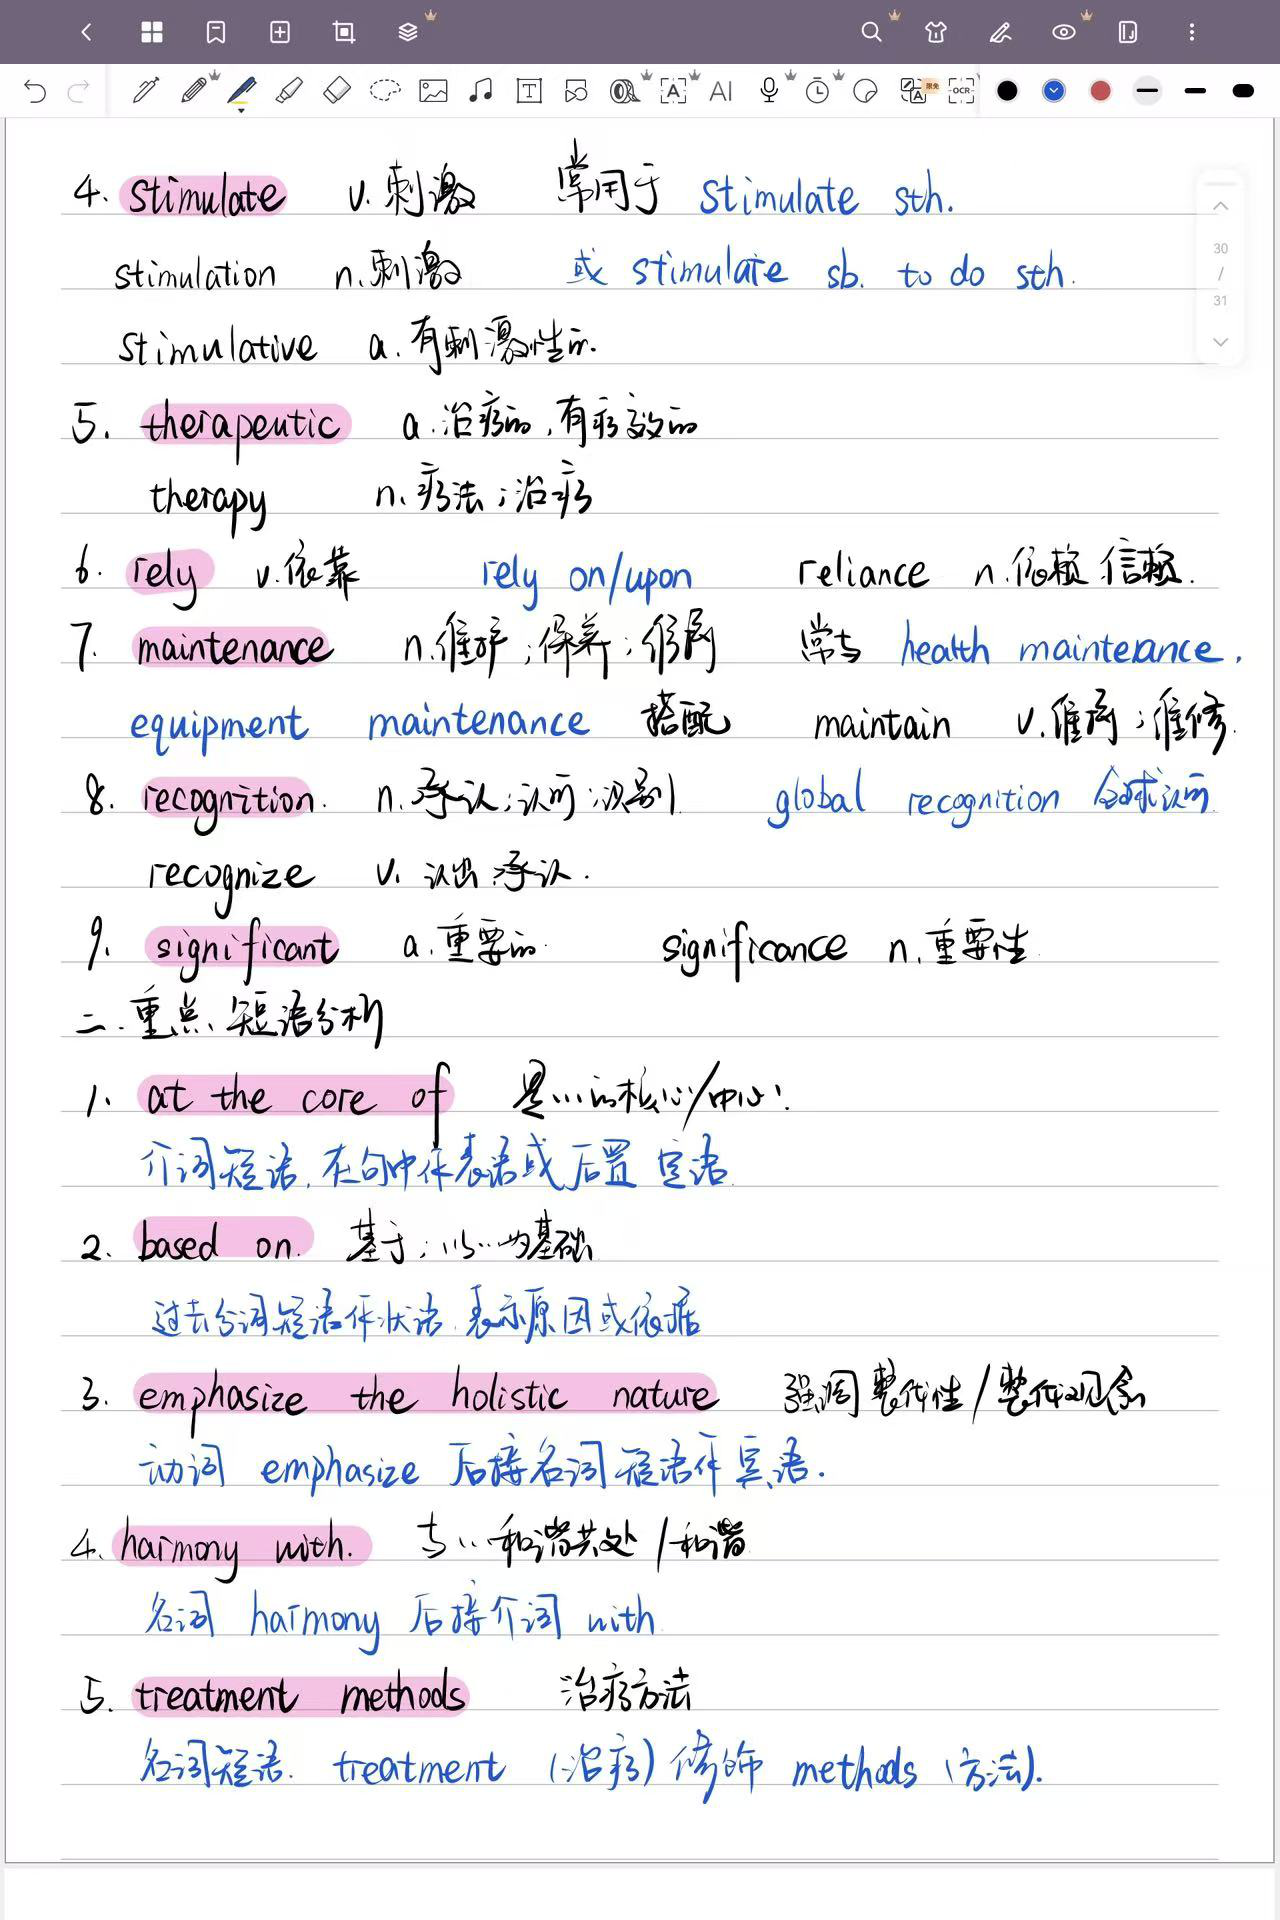 AI
限免
OCR
30
/
31
4. stimulate v.刺激 常用于 stimulate sth.
stimulation n.刺激 或 stimulate sb. to do sth.
stimulative a.有刺激性的.
5. therapeutic a.治疗的,有疗效的
therapy n.疗法;治疗
6. rely v.依靠 rely on/upon reliance n.依赖 信赖.
7. maintenance n.维护;保养;维持 常与 health maintenance,
equipment maintenance 搭配 maintain v.维持;维修.
8. recognition. n.承认;认可;识别 global recognition 全球认可
recognize v. 认出 承认.
9. significant a.重要的 significance n.重要性
二.重点短语分析
1. at the core of 是...的核心/中心.
介词短语,在句中作表语或后置定语.
2. based on. 基于;以...为基础
过去分词短语作状语.表示原因或依据
3. emphasize the holistic nature 强调整体性/整体观念
动词 emphasize 后接名词短语作宾语.
4. harmony with. 与...和谐共处/和谐
名词 harmony 后接介词 with
5. treatment methods 治疗方法
名词短语. treatment (治疗)修饰 methods (方法).